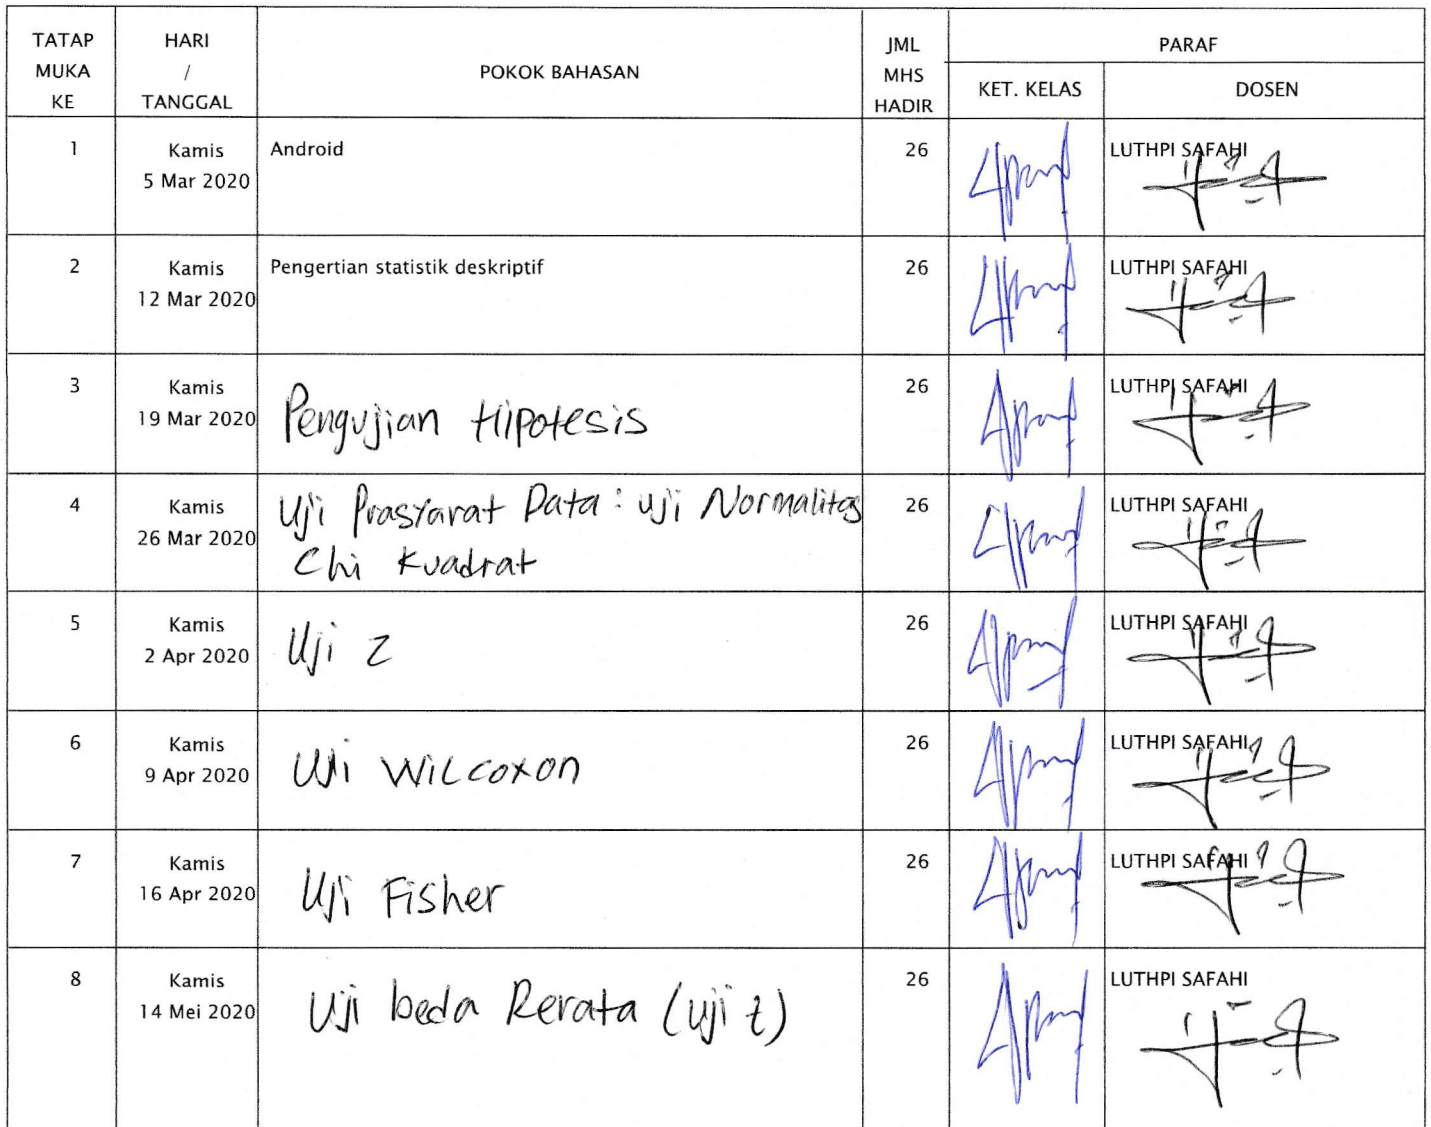 TATAP MUKA KE
HARI / TANGGAL
POKOK BAHASAN
JML MHS HADIR
PARAF
KET. KELAS
DOSEN
1
Kamis
5 Mar 2020
Android
26
LUTHPI SAFAHI
2
Kamis
12 Mar 2020
Pengertian statistik deskriptif
26
LUTHPI SAFAHI
3
Kamis
19 Mar 2020
Pengujian Hipotesis
26
LUTHPI SAFAHI
4
Kamis
26 Mar 2020
Uji Prasyarat Data : uji Normalitas
Chi Kuadrat
26
LUTHPI SAFAHI
5
Kamis
2 Apr 2020
Uji Z
26
LUTHPI SAFAHI
6
Kamis
9 Apr 2020
Uji Wilcoxon
26
LUTHPI SAFAHI
7
Kamis
16 Apr 2020
Uji Fisher
26
LUTHPI SAFAHI
8
Kamis
14 Mei 2020
Uji beda Rerata (uji t)
26
LUTHPI SAFAHI